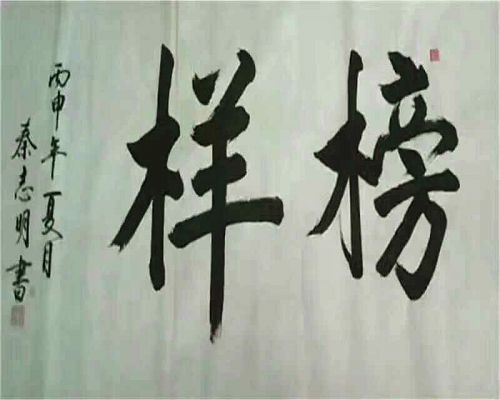 榜样
丙申年夏月
秦志明书